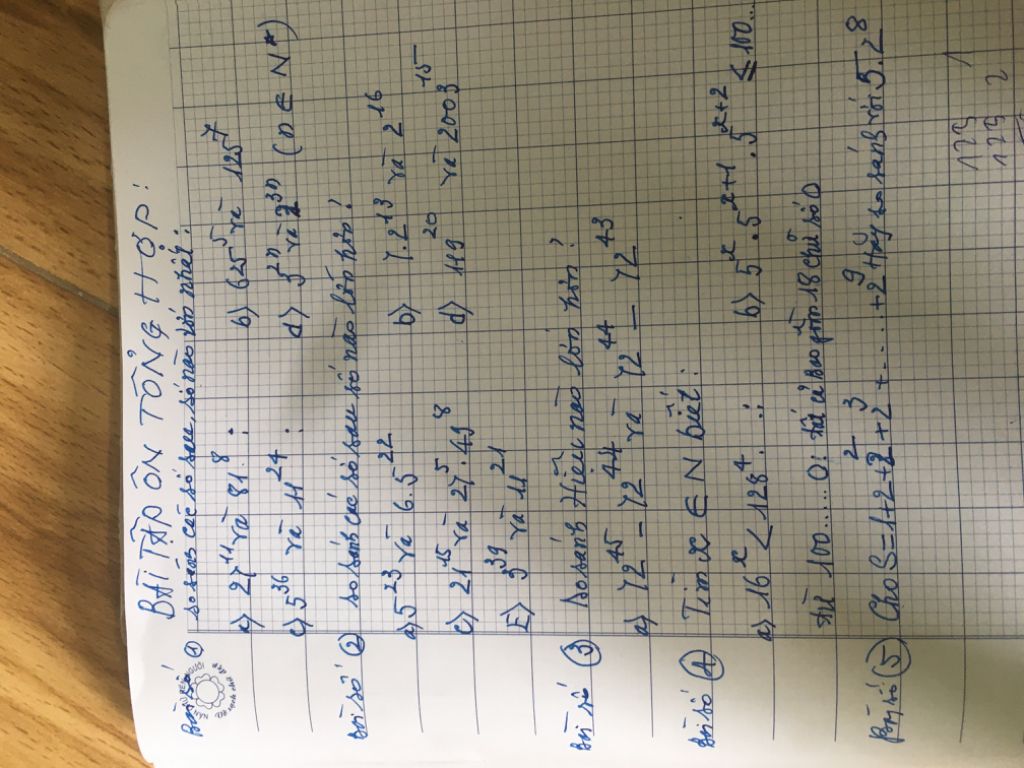 BÀI TẬP ÔN TỔNG HỢP:
Bài số ① so sánh các số sau, số nào lớn hơn?
a) 27¹¹ và 81⁸ : b) 625⁵ và 125⁷
c) 5³⁶ và 11²⁴ : d) 3²ⁿ và 2³ⁿ (n ∈ N*)
Bài số ② so sánh các số sau số nào lớn hơn?
a) 5²³ và 6.5²² b) 7.2¹³ và 2¹⁶
c) 21¹⁵ và 27⁵.49⁸ d) 199²⁰ và 2003¹⁵
E) 3³⁹ và 11²¹
Bài số ③ So sánh Hiệu nào lớn hơn?
a) 72⁴⁵ - 72⁴⁴ và 72⁴⁴ - 72⁴³
Bài số ④ Tìm x ∈ N biết:
a) 16ˣ < 128⁴ : b) 5ˣ.5ˣ⁺¹.5ˣ⁺² ≤ 100...
100.....0: 18 chữ số 0
Bài số ⑤ Cho S=1+2+2²+2³+.....+2⁹ Hãy so sánh S với 5.2⁸
129 1
129 2